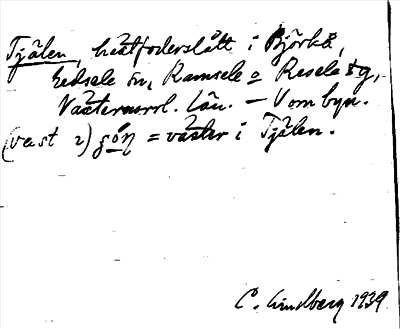 Tjälen, hästfoderslått i Björkå,
Eedsele sn, Ramsele o Resele tg,
Västernorrl. län. – V om byn.
(väst 2) = väster i Tjälen.
C. Lindberg 1939